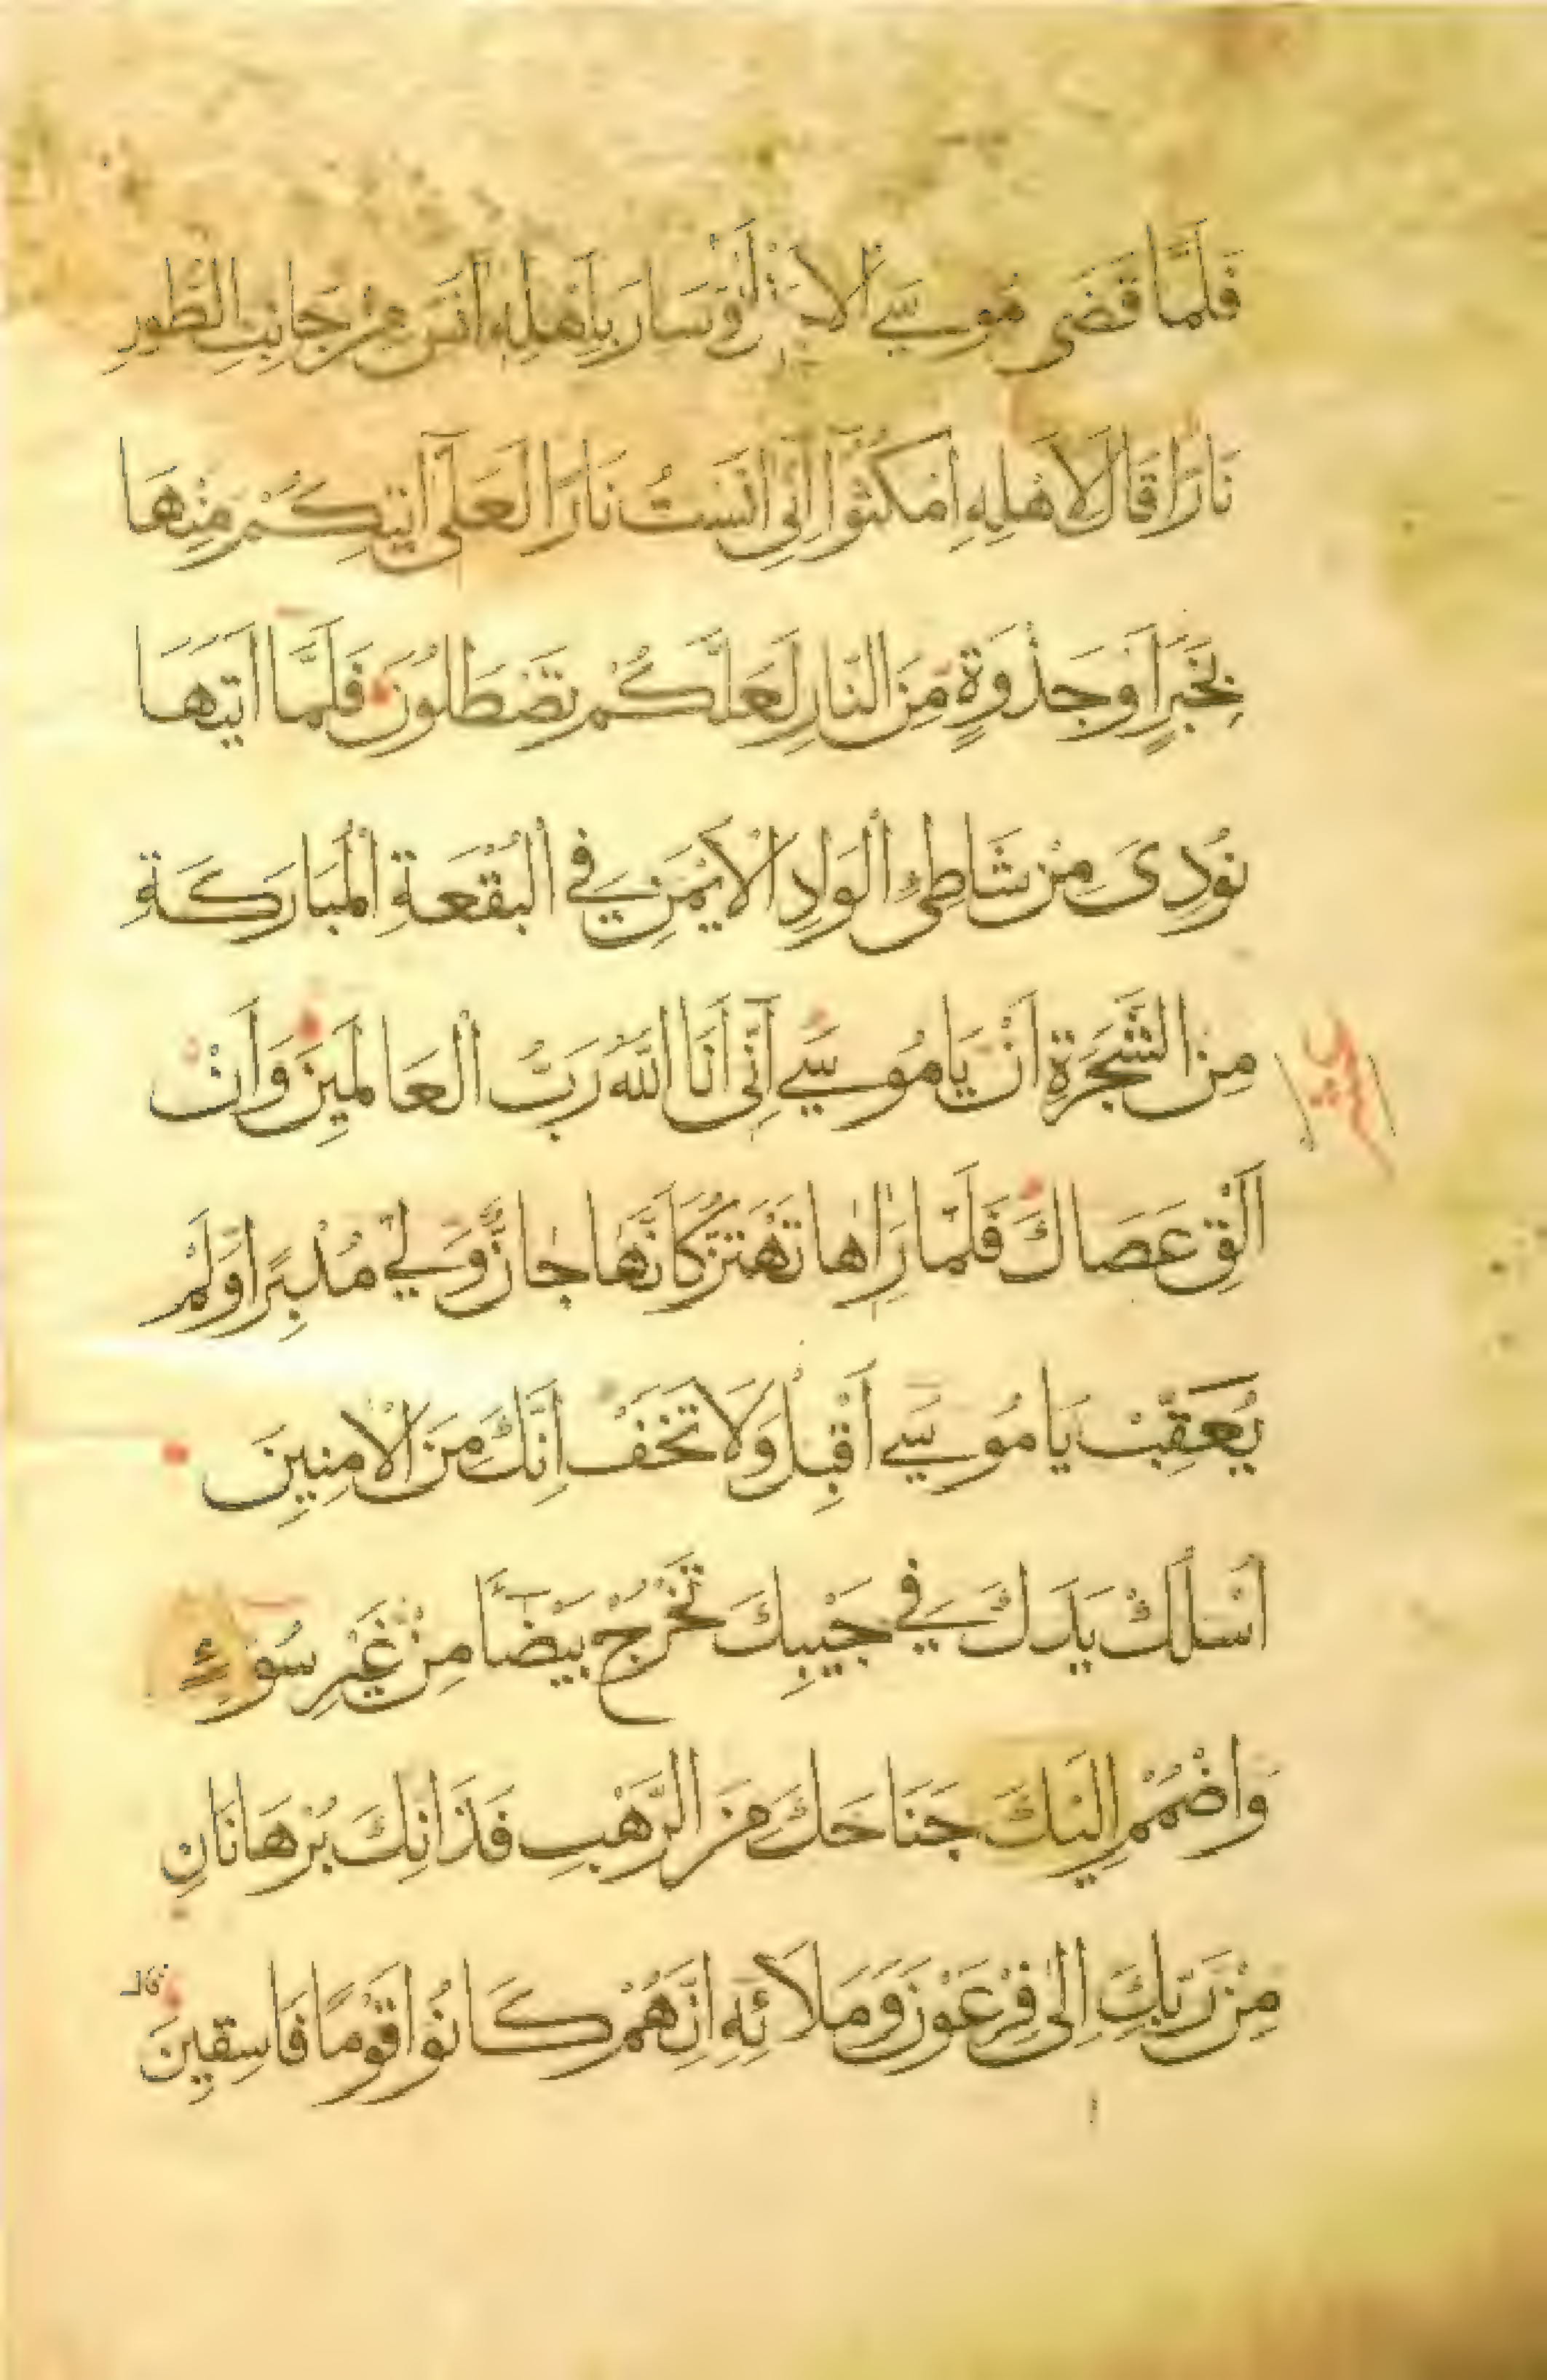 فَلَمَّا قَضَى مُوسَى الاَجَلَ وَسَارَ بِاَهْلِهِ اٰنَسَ مِنْ جَانِبِ الطُّورِ
نَارًا قَالَ لِاَهْلِهِ امْكُثُوٓا اِنِّىٓ اٰنَسْتُ نَارًا لَعَلِّىٓ اٰتِيكُمْ مِنْهَا
بِخَبَرٍ اَوْ جَذْوَةٍ مِنَ النَّارِ لَعَلَّكُمْ تَصْطَلُونَ فَلَمَّٓا اَتٰيهَا
نُودِىَ مِنْ شَاطِئِ الْوَادِ الْاَيْمَنِ فِي الْبُقْعَةِ الْمُبَارَكَةِ
مِنَ الشَّجَرَةِ اَنْ يَا مُوسٰى اِنِّىٓ اَنَا اللّٰهُ رَبُّ الْعَالَمِينَ وَاَنْ
اَلْقِ عَصَاكَ فَلَمَّا رَاٰهَا تَهْتَزُّ كَاَنَّهَا جَانٌّ وَلّٰى مُدْبِرًا وَلَمْ
يُعَقِّبْ يَا مُوسٰى اَقْبِلْ وَلَا تَخَفْ اِنَّكَ مِنَ الْاٰمِنِينَ
اُسْلُكْ يَدَكَ فِي جَيْبِكَ تَخْرُجْ بَيْضَآءَ مِنْ غَيْرِ سُوٓءٍ
وَاضْمُمْ اِلَيْكَ جَنَاحَكَ مِنَ الرَّهْبِ فَذَانِكَ بُرْهَانَانِ
مِنْ رَبِّكَ اِلٰى فِرْعَوْنَ وَمَلَائِهِ اِنَّهُمْ كَانُوا قَوْمًا فَاسِقِينَ